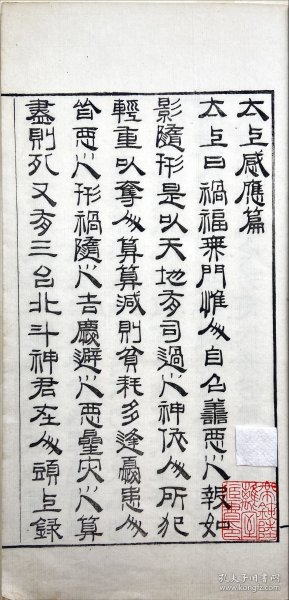 太上感應篇
太上曰禍福無門惟人自召譱惡之報如
影隨形是以天地有司過之神依人所犯
輕重以奪人算算減則貧耗多逢憂患人
皆惡之刑禍隨之吉慶避之惡曐灾之算
盡則死又有三台北斗神君在人頭上錄
孔夫子旧书网
www.kongfz.com